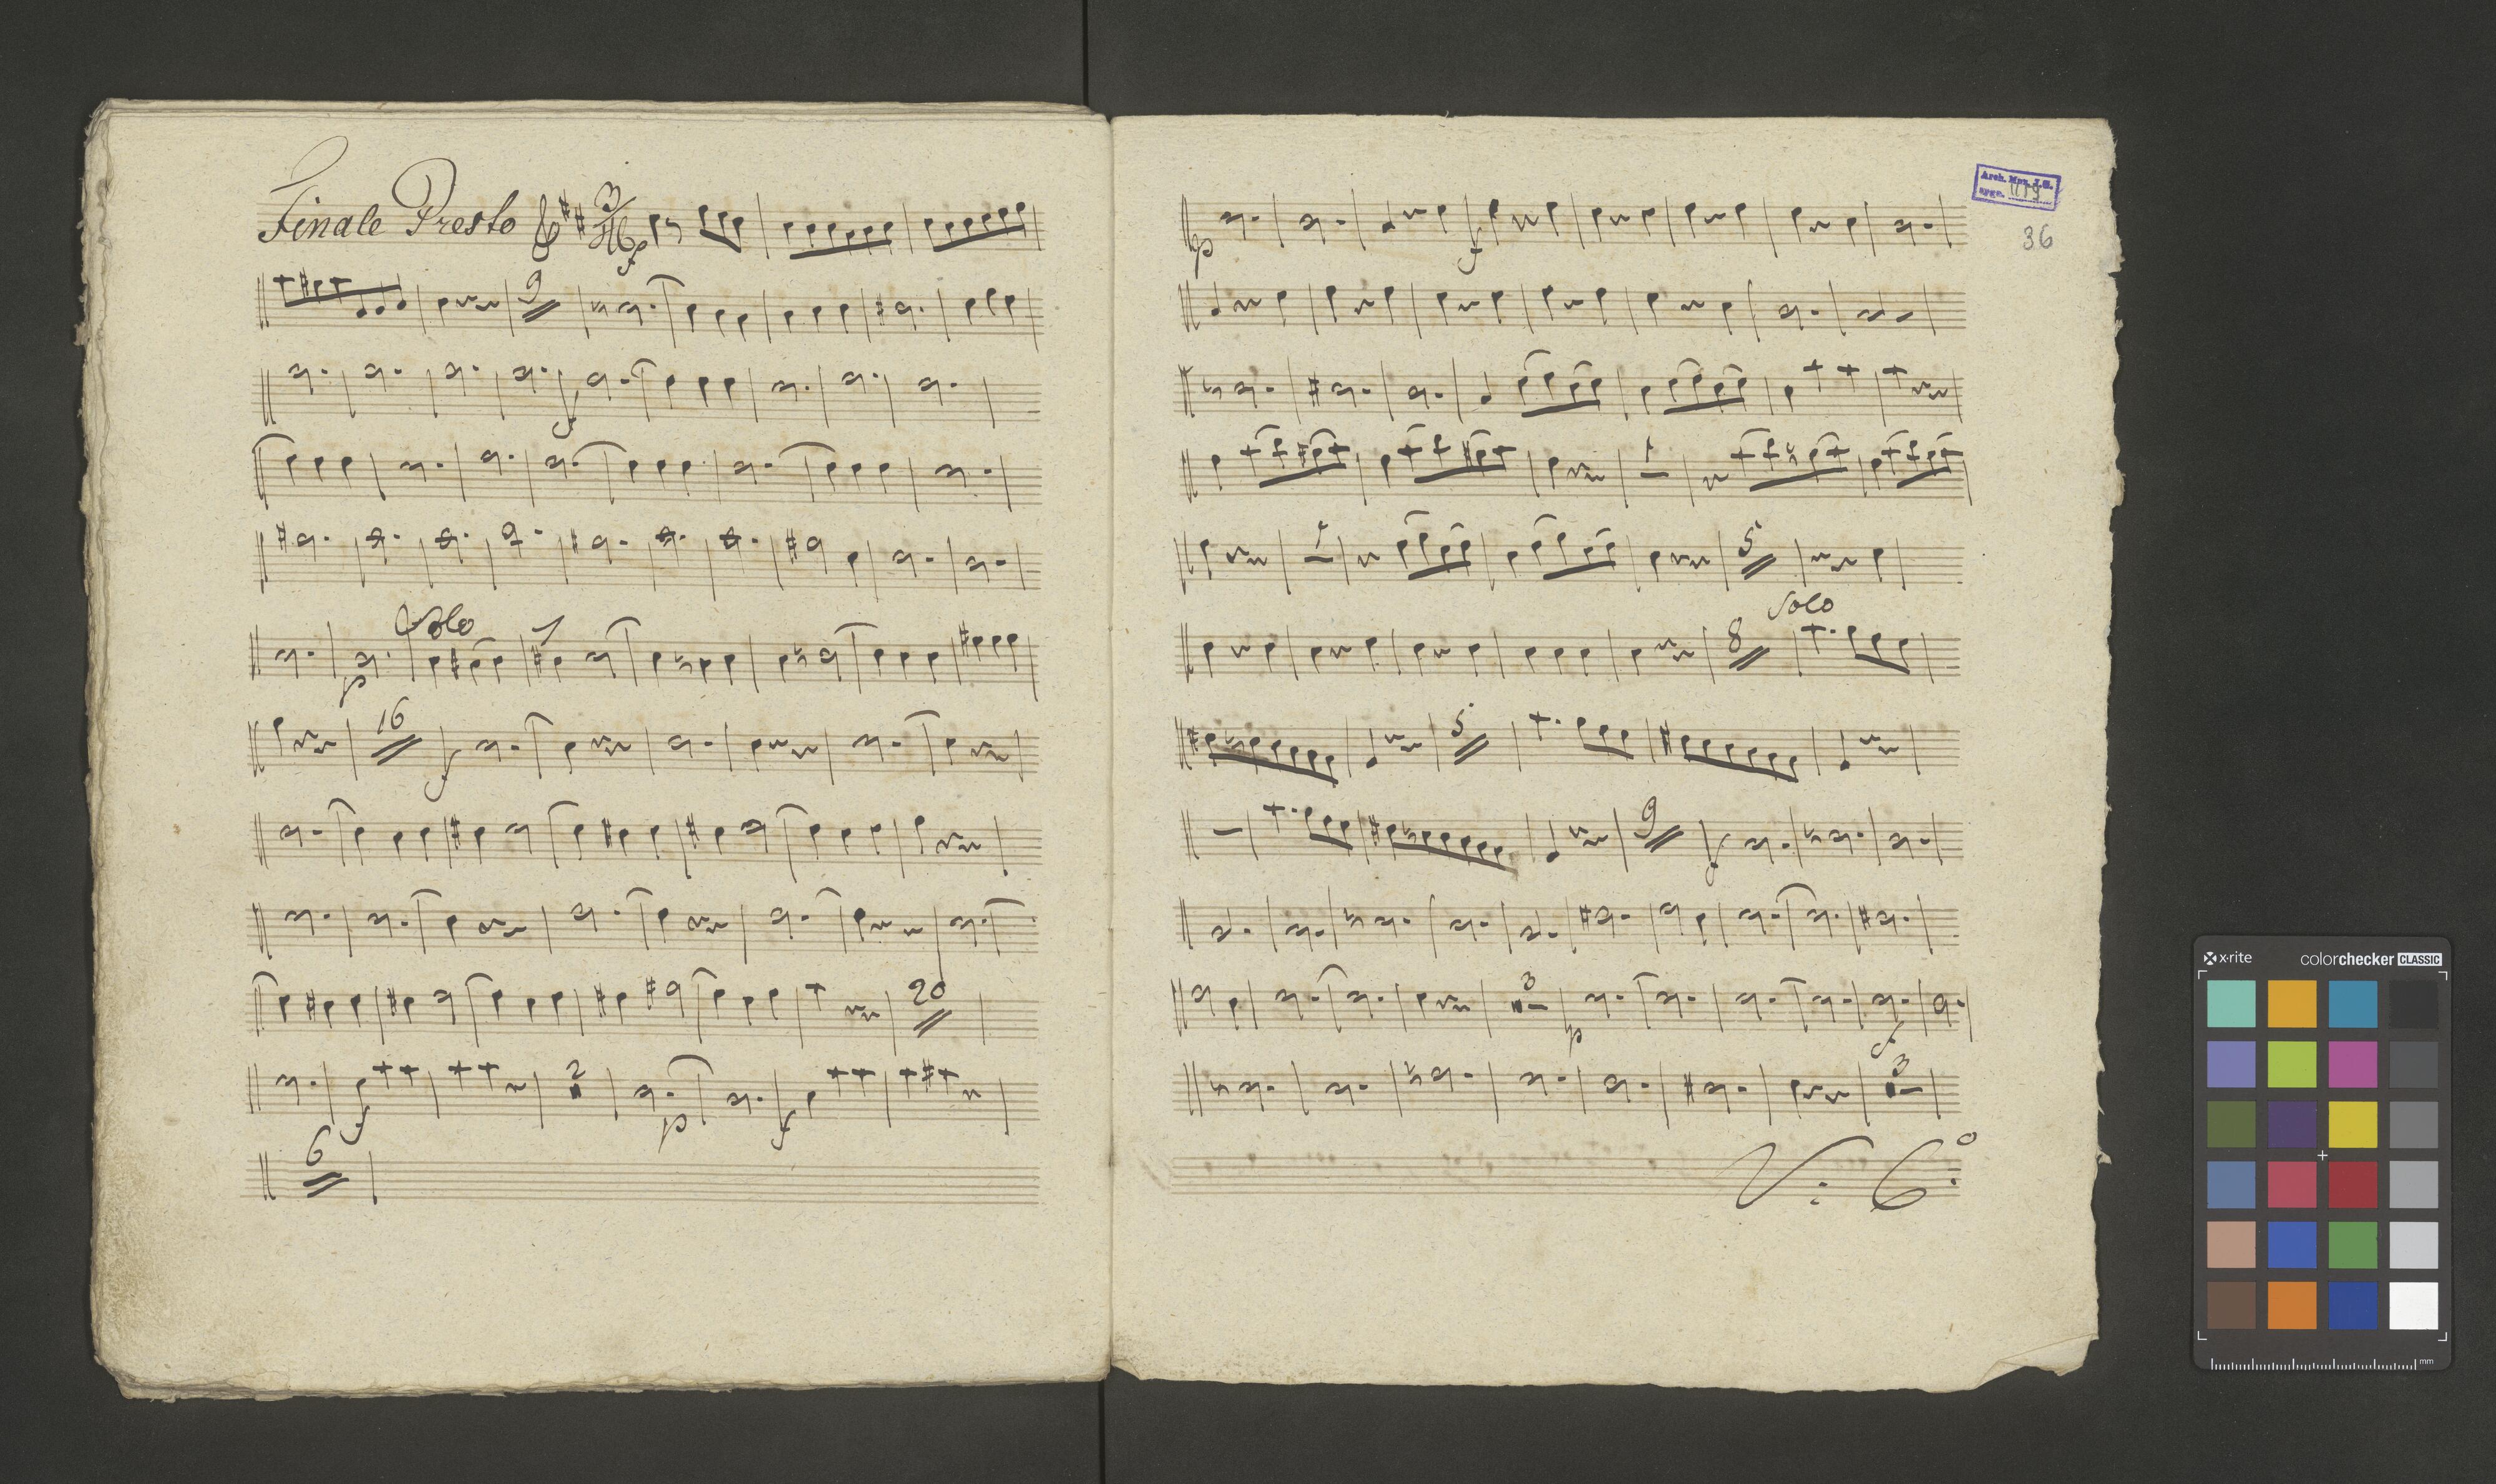 Finale Presto 3/4 f
9
f
Solo 1
p
16
f
20
2
f p f
6
Arch. Mus. J.G.
36
p f
1
1 5
Solo
8
5
9
f
3
p f
3
V: S:
x-rite colorchecker CLASSIC
mm